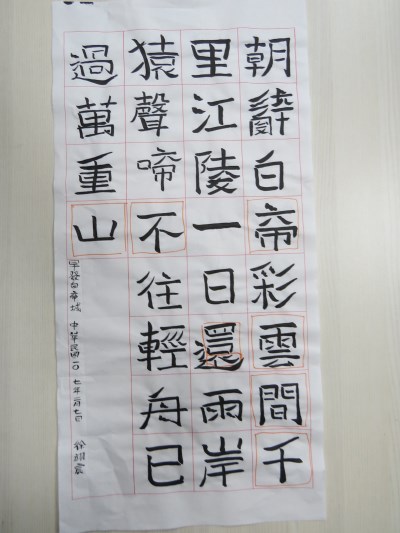 朝辭白帝彩雲間千
里江陵一日還雨岸
猿聲啼不往輕舟已
過萬重山
發白帝城 中華民國一〇七年